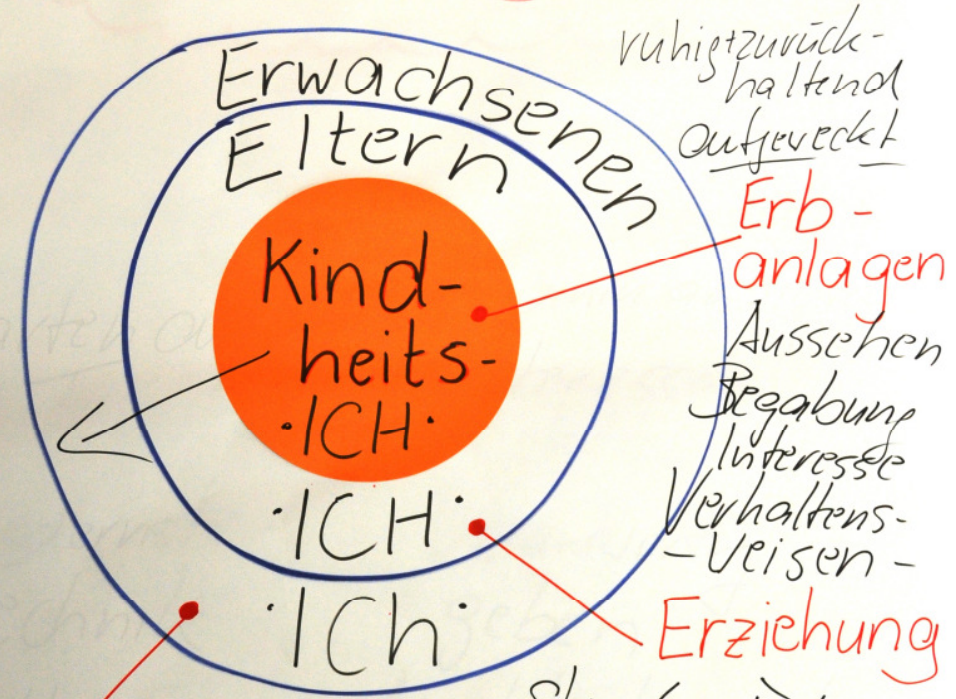 Erwachsenen
Eltern
Kind-
heits-
·ICH·
·ICH·
·ICh·
ruhig+zurück-
haltend
aufgeveckt
Erb-
anlagen
Aussehen
Begabung
Interesse
Verhaltens-
-Veisen-
Erziehung